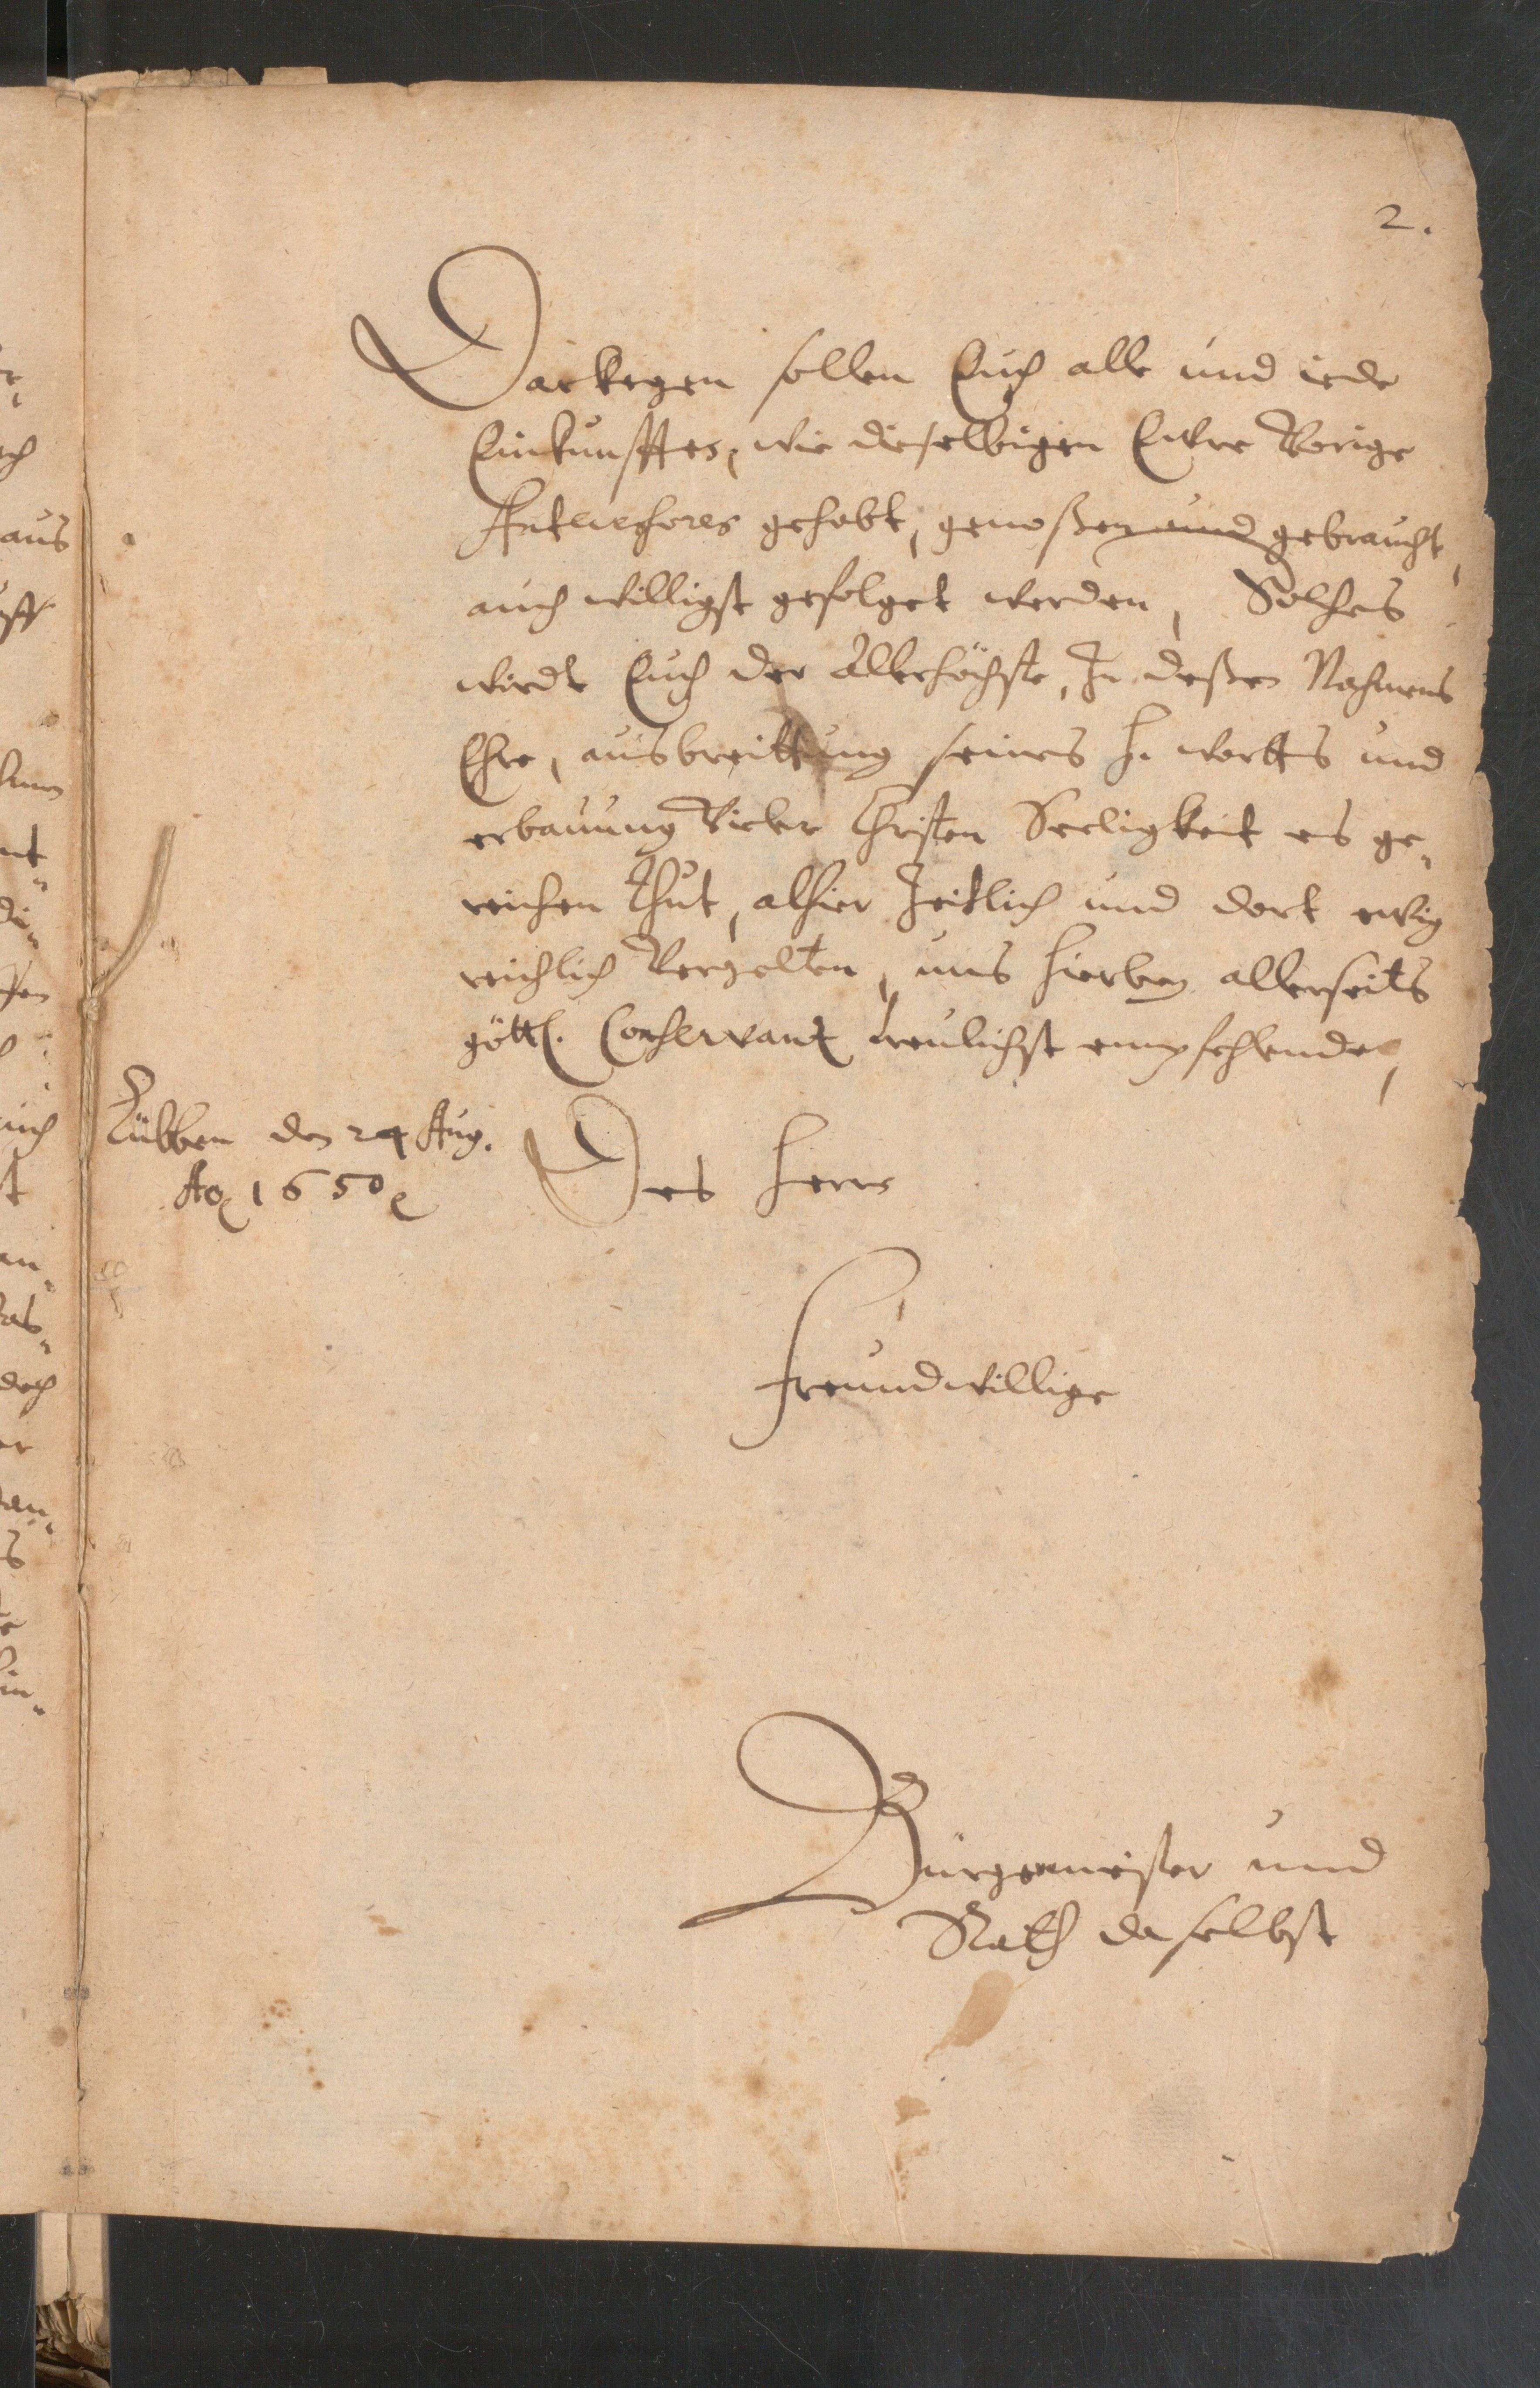 2.
Darkegen sollen Euch alle und iede
Einkunfften, wie dieselbigen Ewre Vorige
Antecessores gehabt, genoßen und gebraucht,
auch willigst gefolget werden, Solches
wirdt Euch der Allerhöchste, In deßen Nahmens
Ehre, ausbreittung seines H. wortts und
erbauung Vieler Christen Seeligkeit es ge-
reichen thut, alhier Zeitlich und dort ewig
reichlich Vergelten, uns hierbey allerseits
göttl. treulichst empfehlende,
Lübben den 24 Aug.
Ao 1650
Des Herrn
Freundwillige
Bürgermeister und
Rath daselbst